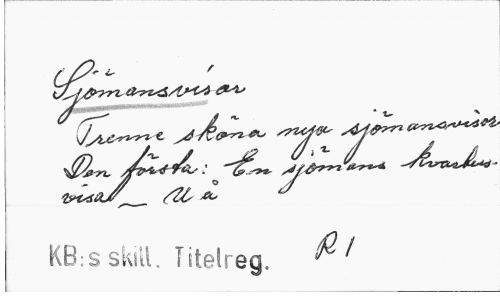 Sjömansvisor
Trenne sköna nya sjömansvisor
Den första: En sjömans kvarhus-
visa — U å
KB:s skill. Titelreg. R 1